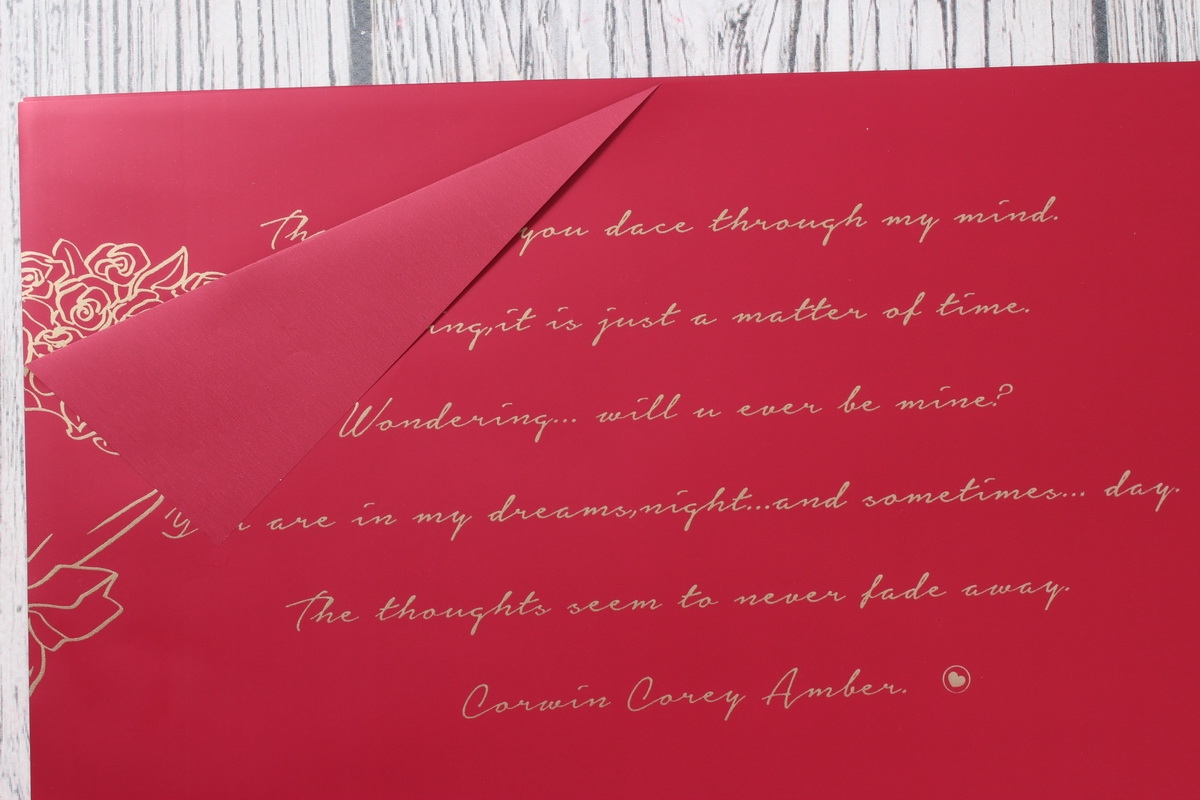 you dace through my mind.
it is just a matter of time.
Wondering... will u ever be mine?
are in my dreams,night...and sometimes... day.
The thoughts seem to never fade away.
Corwin Corey Amber.